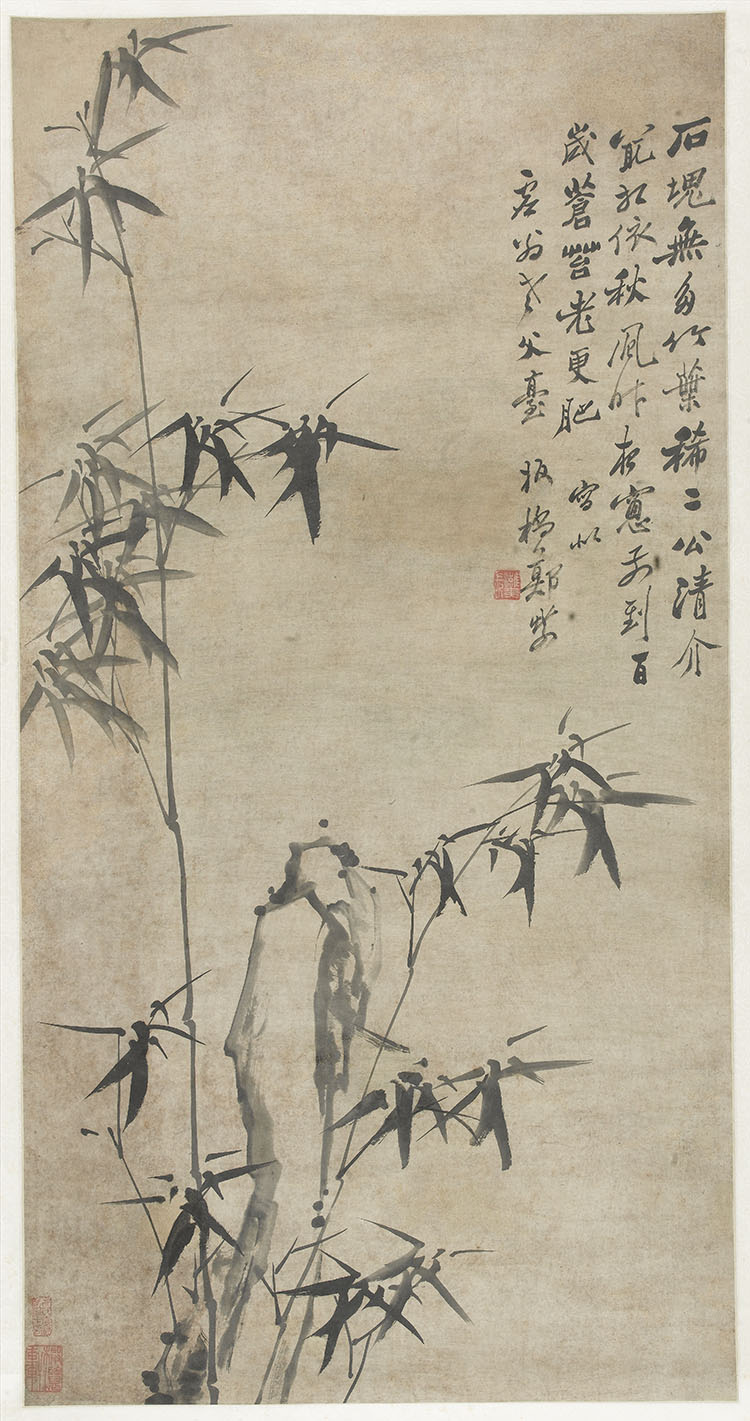 石塊無多竹葉稀二公清介
冣相依秋風昨夜窻前到百
歲蒼苔老更肥 寫似
虛翁老父臺 板橋鄭燮